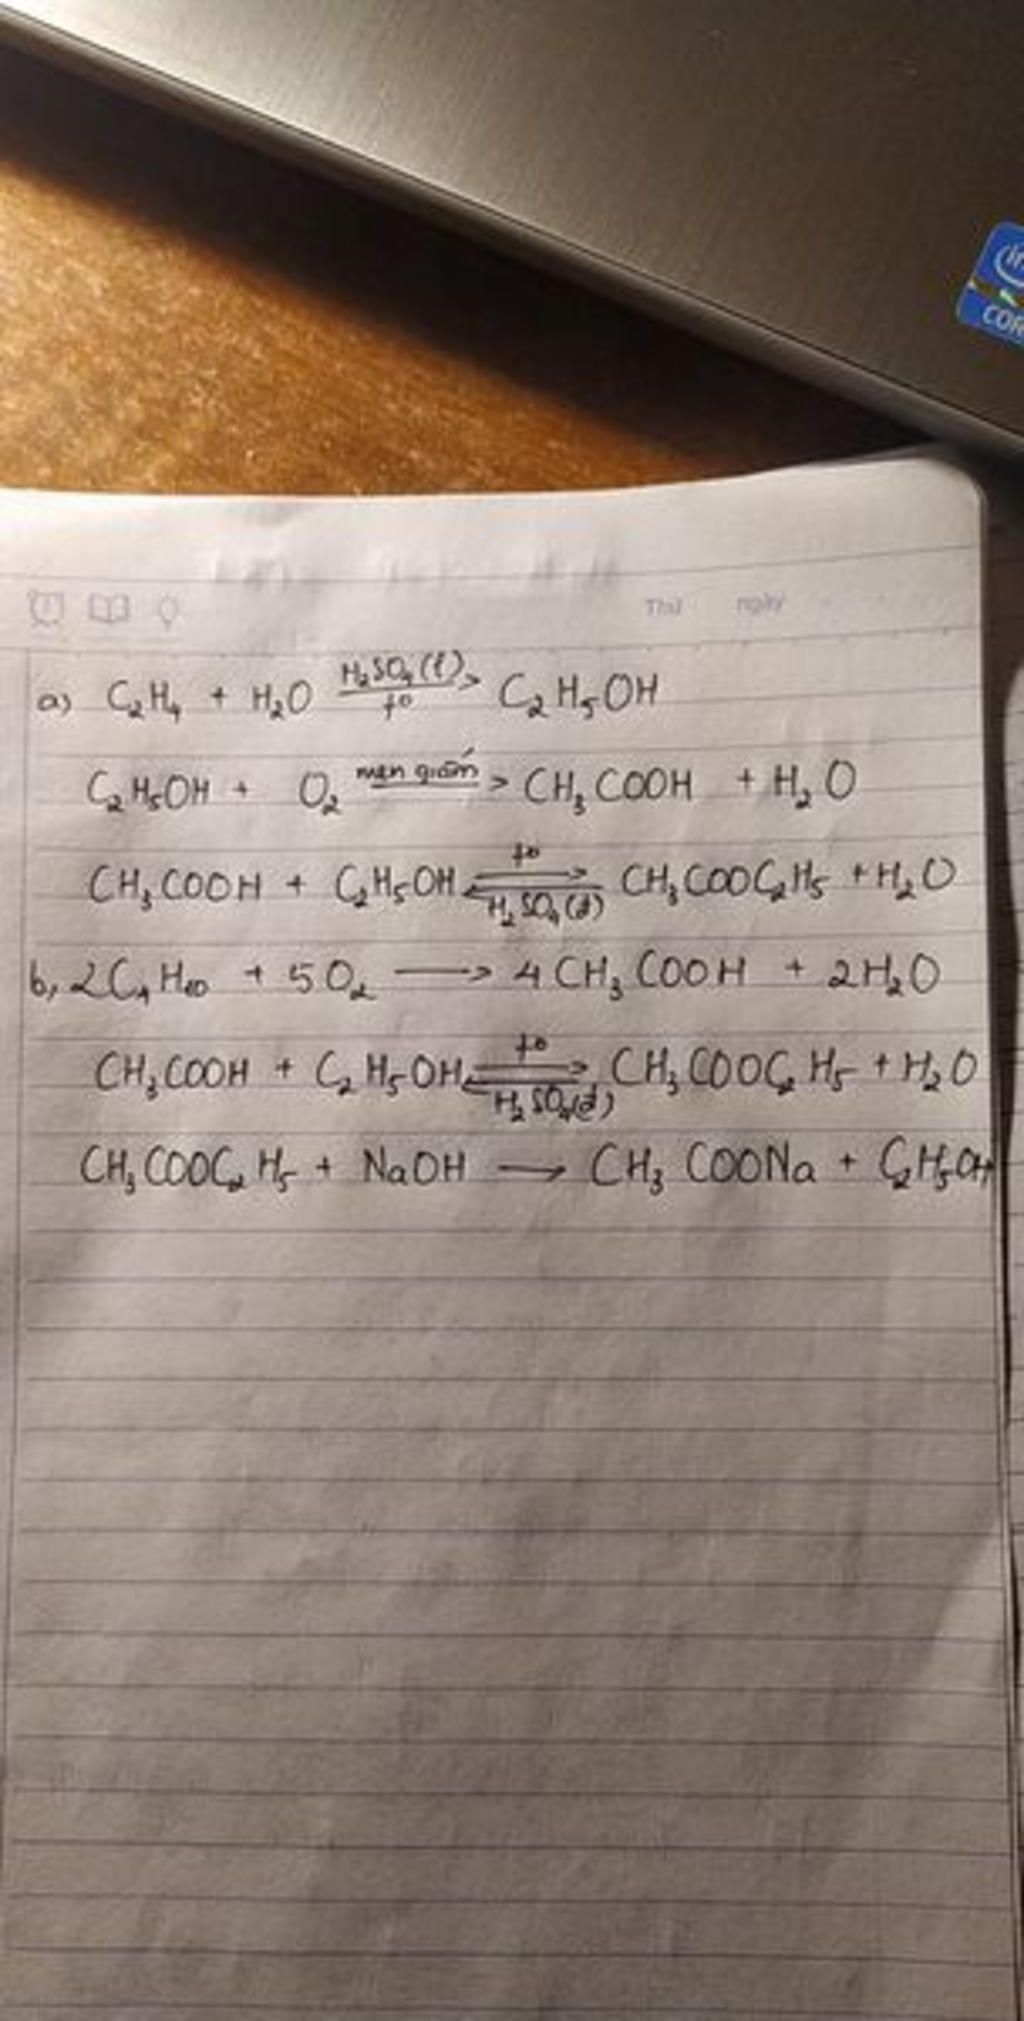 In
COR
Thứ ngày
a) C₂H₄ + H₂O H₂SO₄(l) t° > C₂H₅OH
C₂H₅OH + O₂ men giấm > CH₃COOH + H₂O
CH₃COOH + C₂H₅OH t° ⇌ H₂SO₄(đ) CH₃COOC₂H₅ + H₂O
b, 2C₄H₁₀ + 5O₂ → 4CH₃COOH + 2H₂O
CH₃COOH + C₂H₅OH t° ⇌ H₂SO₄(đ) CH₃COOC₂H₅ + H₂O
CH₃COOC₂H₅ + NaOH → CH₃COONa + C₂H₅OH